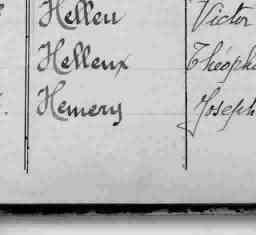 Helleu Victor
Helleux Théopha
Hemery Joseph